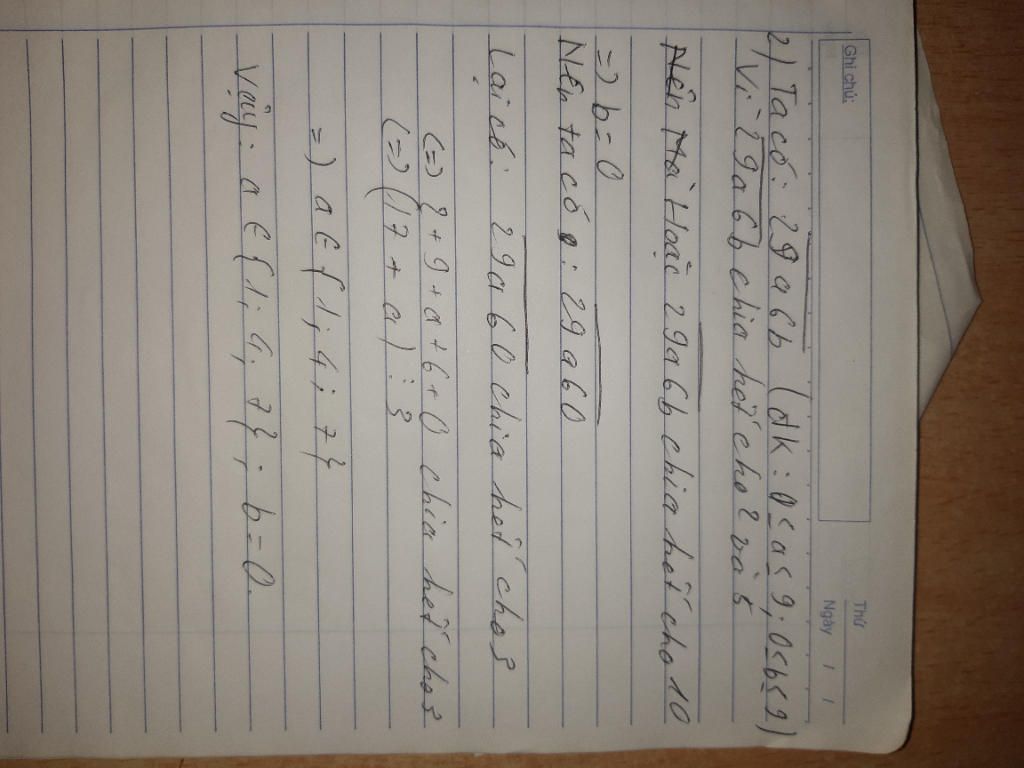 Ghi chú:
Thứ
Ngày / /
2) Ta có: 29a6b (đk: 0≤a≤9; 0≤b≤9)
Vì 29a6b chia hết cho 2 và 5
Hoặc 29a6b chia hết cho 10
=> b=0
Nên ta có: 29a60
Lại có: 29a60 chia hết cho 3
(=) 2+9+a+6+0 chia hết cho 3
(=) (17+a) ⋮ 3
=) a∈{1; 4; 7}
Vậy: a∈{1; 4; 7}; b=0.